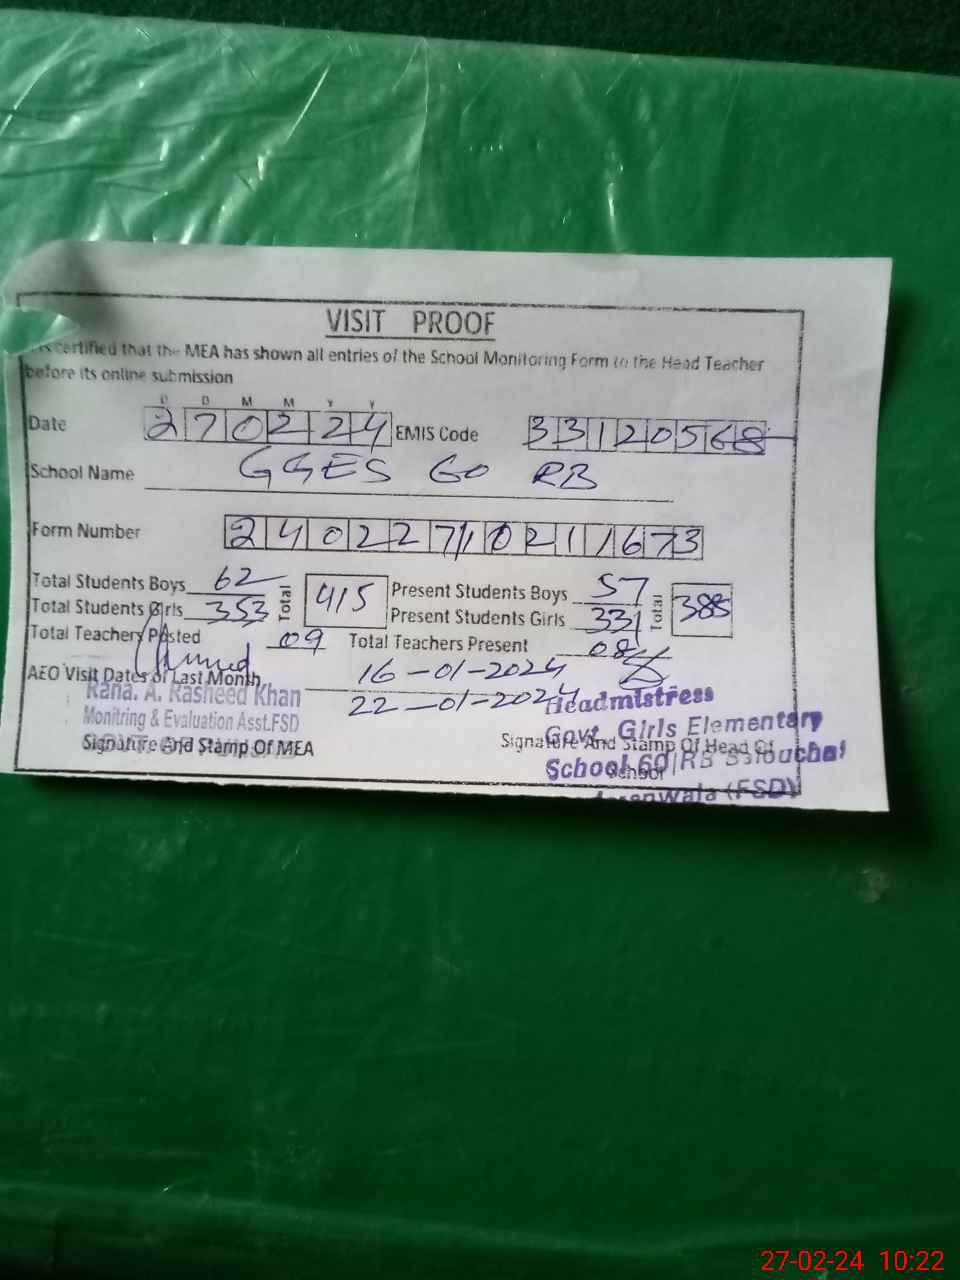 VISIT PROOF
certified that the MEA has shown all entries of the School Monitoring Form to the Head Teacher
before its online submission
D D M M Y Y
Date 270224 EMIS Code 33120568
School Name GGES 60 RB
Form Number 24022710211673
Total Students Boys 62 Total 415 Present Students Boys 57 Total 388
Total Students Girls 353 Present Students Girls 331
Total Teachers Posted 09 Total Teachers Present 08
AEO Visit Dates of Last Month 16-01-2024
22-01-2024
Rana. A. Rasheed Khan
Monitring & Evaluation Asst.FSD
Signature And Stamp Of MEA
Headmistress
Govt. Girls Elementary
Signature And Stamp Of Head Of
School
School 60/RB Balouchai
(FSD)
27-02-24 10:22